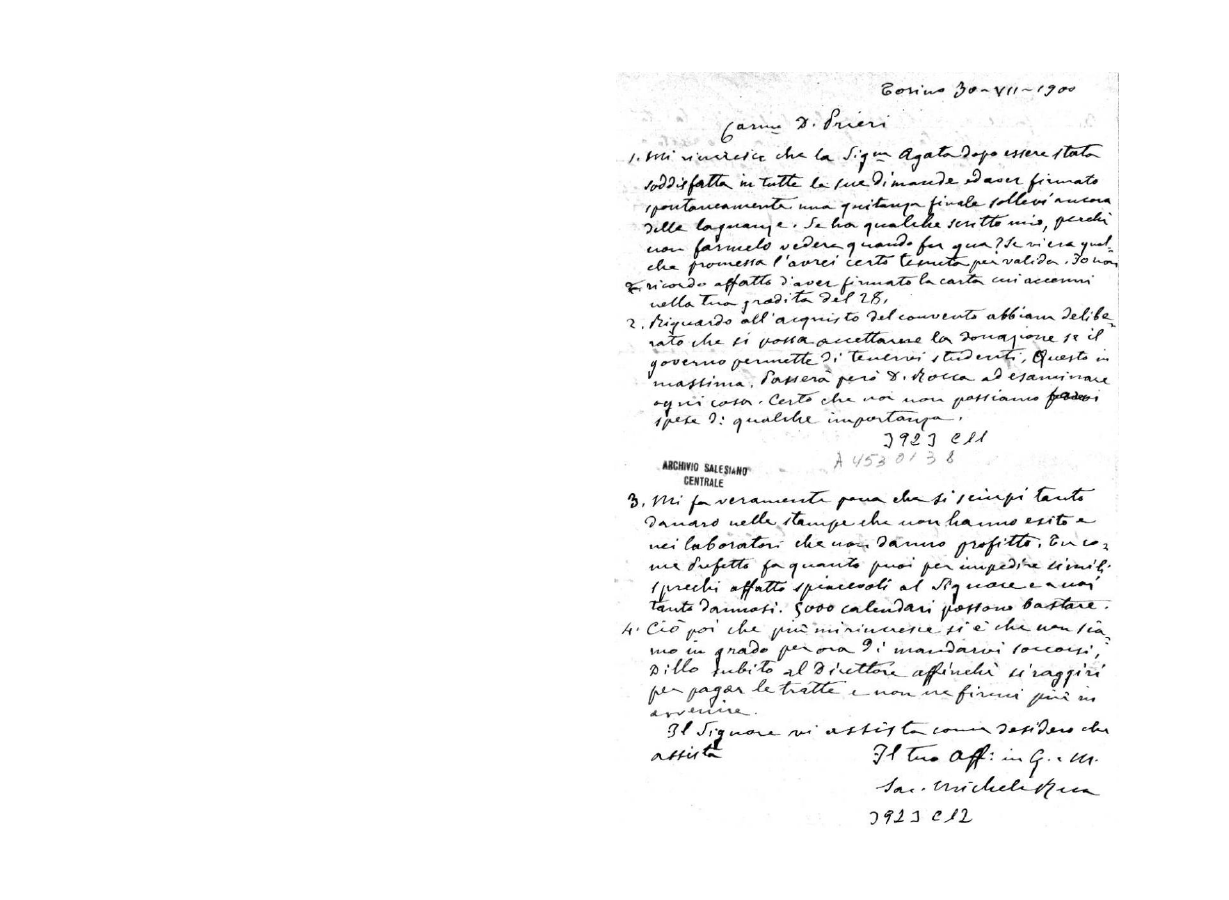 Torino 30-VII-1900
Carmo D. Prieri
1. Mi rincresce che la Sigra Agata dopo essere stata
soddisfatta in tutte le sue dimande ed aver firmato
spontaneamente una quitanza finale sollevi ancora
delle lagnanze. Se ha qualche scritto mio, perchè
non farmelo vedere quando fu qua? Se vi era qual-
che promessa l'avrei certo tenuta per valida. Io non
ricordo affatto d'aver firmato la carta cui accenni
nella tua gradita del 28.
2. Riguardo all'acquisto del convento abbiam delibe-
rato che si possa accettarne la donazione se il
governo permette di tenervi studenti. Questo in
massima. Passerà però D. Rocca ad esaminare
ogni cosa. Certo che noi non possiamo
spese di qualche importanza.
3923 C11
A 4530138
ARCHIVIO SALESIANO
CENTRALE
3. Mi fa veramente pena che si sciupi tanto
danaro nelle stampe che non hanno esito e
nei laboratori che non danno profitto. Tu co-
me Prefetto fa quanto puoi per impedire simili
sprechi affatto spiacevoli al Signore e a noi
tanto dannosi. 5000 calendari possono bastare.
4. Ciò poi che più mi rincresce si è che non sia-
mo in grado per ora di mandarvi soccorsi,
Dillo subito al Direttore affinchè si raggiri
per pagar le tratte e non ne firmi più in
avvenire.
Il Signore vi assista come desidero che
assista
Il tuo Aff. in G. e M.
Sac. Michele Rua
3923 C12